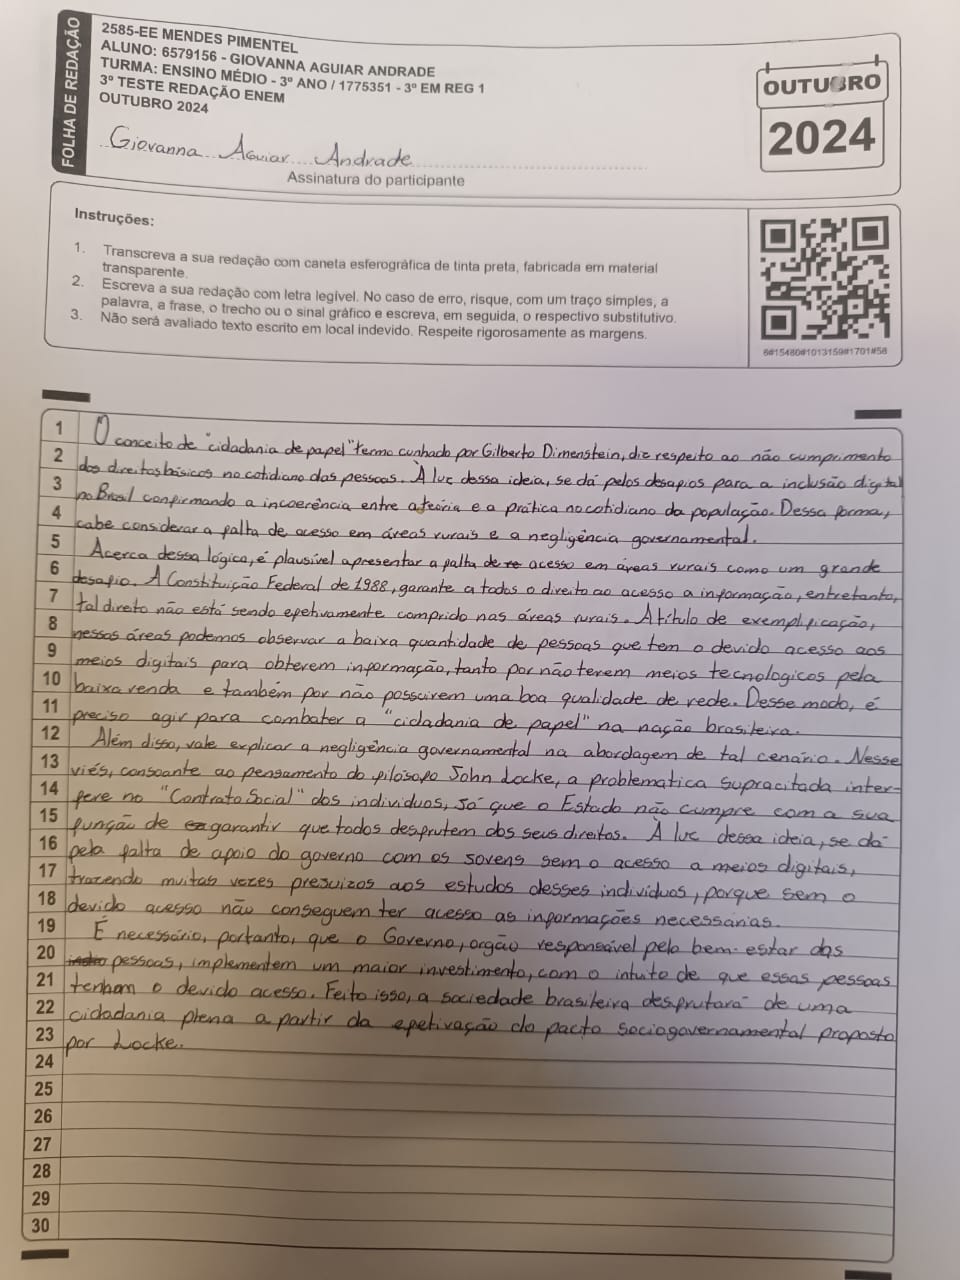 FOLHA DE REDAÇÃO
2585-EE MENDES PIMENTEL
ALUNO: 6579156 - GIOVANNA AGUIAR ANDRADE
TURMA: ENSINO MÉDIO - 3º ANO / 1775351 - 3º EM REG 1
3º TESTE REDAÇÃO ENEM
OUTUBRO 2024
Giovanna Aguiar Andrade
Assinatura do participante
OUTUBRO
2024
Instruções:
1. Transcreva a sua redação com caneta esferográfica de tinta preta, fabricada em material
transparente.
2. Escreva a sua redação com letra legível. No caso de erro, risque, com um traço simples, a
palavra, a frase, o trecho ou o sinal gráfico e escreva, em seguida, o respectivo substitutivo.
3. Não será avaliado texto escrito em local indevido. Respeite rigorosamente as margens.
6#15480#1013159#1701#58
1 O conceito de "cidadania de papel" termo cunhado por Gilberto Dimenstein, diz respeito ao não cumprimento
2 dos direitos básicos no cotidiano das pessoas. À luz dessa ideia, se dá pelos desafios para a inclusão digital
3 no Brasil confirmando a incoerência entre a teória e a prática no cotidiano da população. Dessa forma,
4 cabe considerar a falta de acesso em áreas rurais e a negligência governamental.
5 Acerca dessa lógica, é plausível apresentar a falta de acesso em áreas rurais como um grande
6 desafio. A Constituição Federal de 1988, garante a todos o direito ao acesso a informação, entretanto,
7 tal direito não está sendo efetivamente comprido nas áreas rurais. A título de exemplificação,
8 nessas áreas podemos observar a baixa quantidade de pessoas que tem o devido acesso aos
9 meios digitais para obterem informação, tanto por não terem meios tecnologicos pela
10 baixa renda e também por não possuirem uma boa qualidade de rede. Desse modo, é
11 preciso agir para combater a "cidadania de papel" na nação brasileira.
12 Além disso, vale explicar a negligência governamental na abordagem de tal cenário. Nesse
13 viés, consoante ao pensamento do filósofo John Locke, a problematica supracitada inter-
14 fere no "Contrato Social" dos individuos, já que o Estado não cumpre com a sua
15 função de garantir que todos desfrutem dos seus direitos. À luz dessa ideia, se dá
16 pela falta de apoio do governo com os jovens sem o acesso a meios digitais,
17 trazendo muitas vezes prejuizos aos estudos desses individuos, porque sem o
18 devido acesso não conseguem ter acesso as informações necessárias.
19 É necessário, portanto, que o Governo, orgão responsável pelo bem-estar das
20 pessoas, implementem um maior investimento, com o intuito de que essas pessoas
21 tenham o devido acesso. Feito isso, a sociedade brasileira desfrutará de uma
22 cidadania plena a partir da efetivação do pacto sociogovernamental proposto
23 por Locke.
24
25
26
27
28
29
30